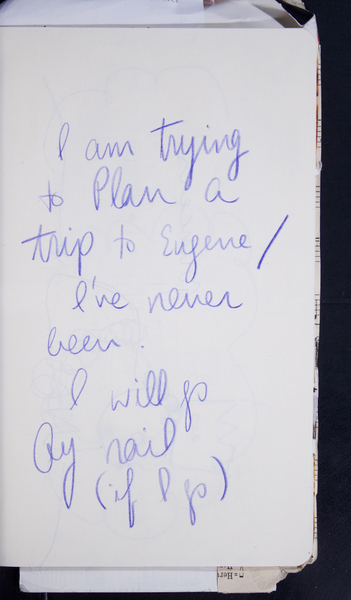 I am trying
to Plan a
trip to Eugene /
I've never
been.
I will go
By rail
(if I go)